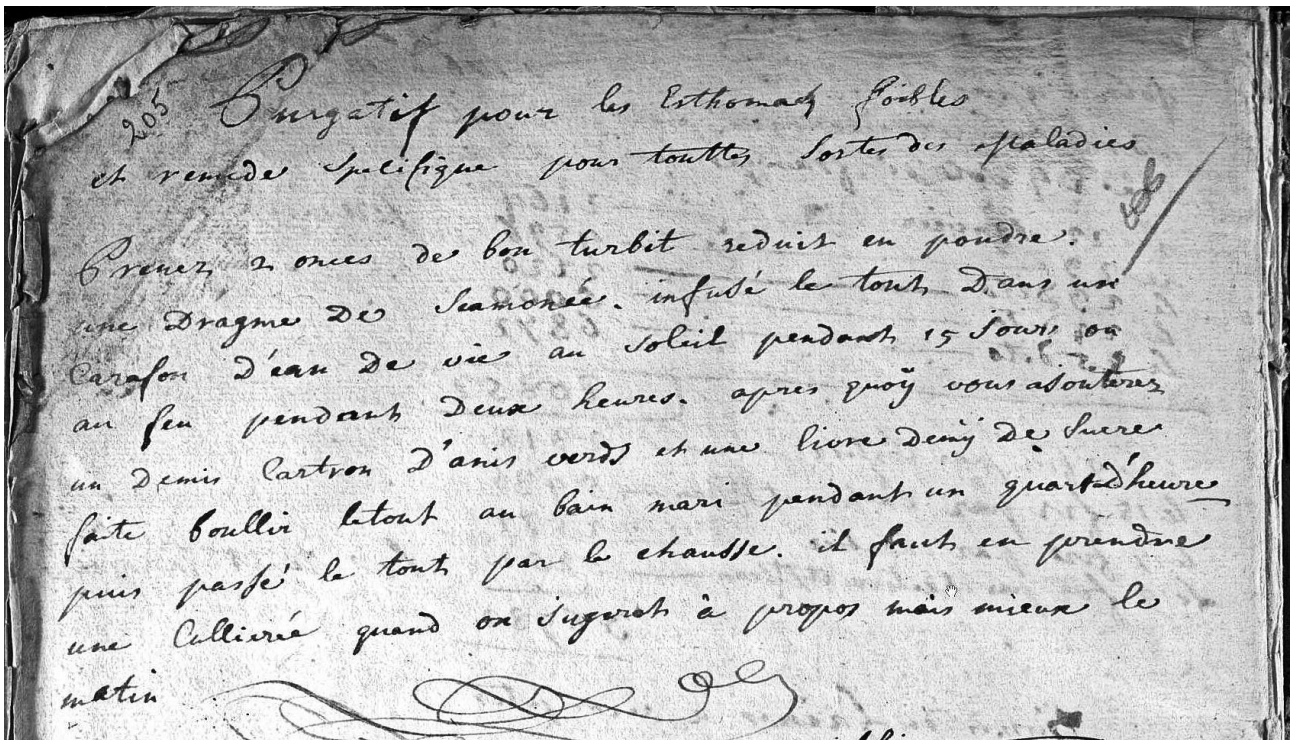 205
Purgatif pour les Esthomach foibles
et remede Spelifique pour touttes Sortes des Maladies
Prenez 2 onces de bon turbit reduit en poudre.
une Dragme De Scamonée. infusé le tout Dans un
Carafon D'eau De vie au Soleil pendant 15 Jours ou
au feu pendant Deux heures. apres quoÿ vous ajouterez
un Demis Cartron D'anis verds et une livre Demÿ De Sucre
faite boullir letout au bain mari pendant un quart d'heure
puis passé le tout par la chausse. il faut en prendre
une Culliereé quand on Jugerat à propos mais mieux le
matin